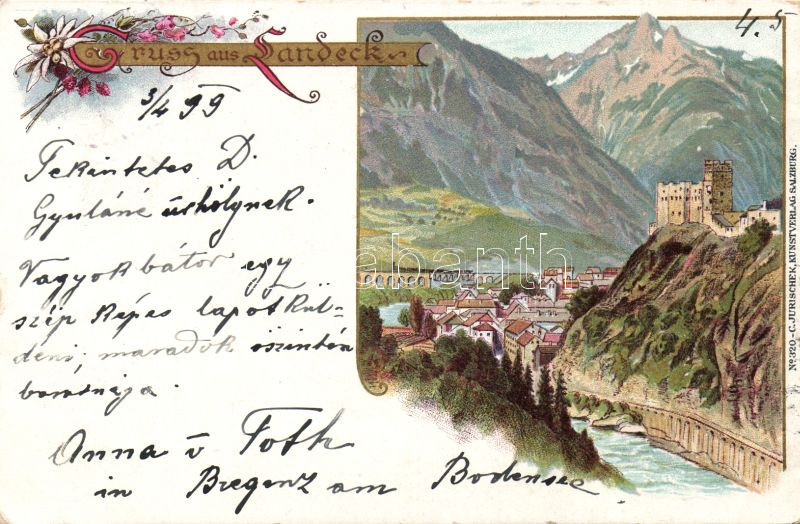 Gruss aus Landeck.
4. 5
3/4 99
Tekintetes D.
Gyuláné úrhölynek.
Vagyok bátor egy
szép képes lapot kül-
deni; maradok őszintén
barátnéja.
Anna v Toth
in Bregenz am Bodensee
Darabanth
No. 320 – C. JURISCHEK, KUNSTVERLAG SALZBURG.